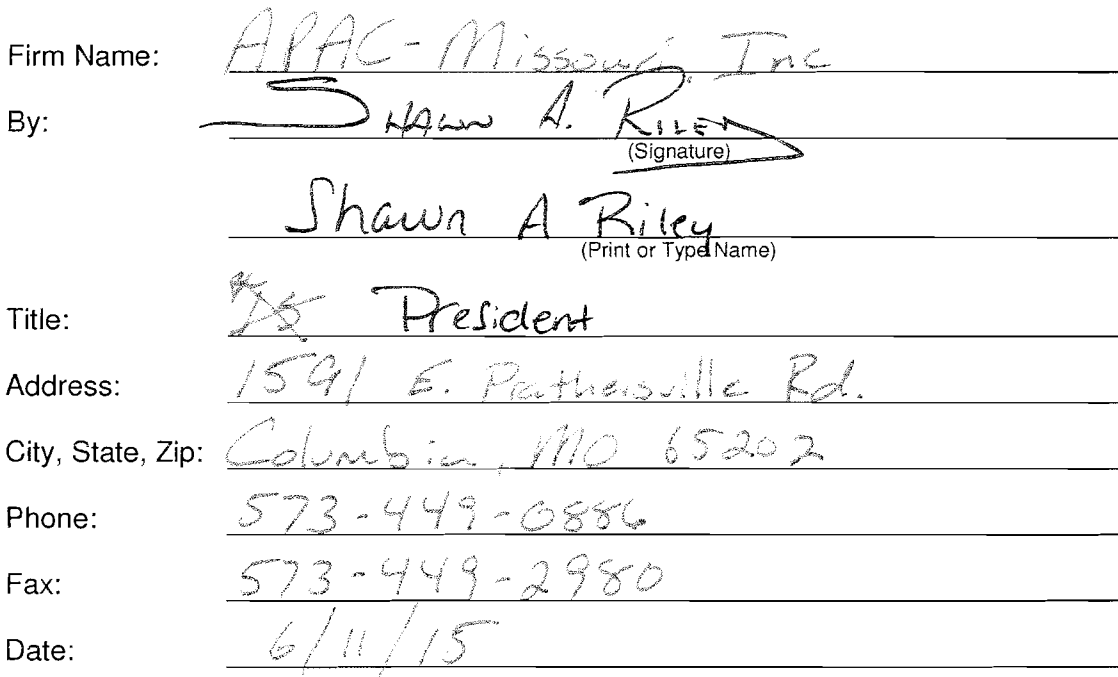 Firm Name: APAC-Missouri, Inc
By: Shawn A. Riley
(Signature)
Shawn A Riley
(Print or Type Name)
Title: President
Address: 1591 E. Prathersville Rd.
City, State, Zip: Columbia, MO 65202
Phone: 573-449-0886
Fax: 573-449-2980
Date: 6/11/15